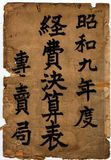 昭和九年度
経費決算表
專賣局